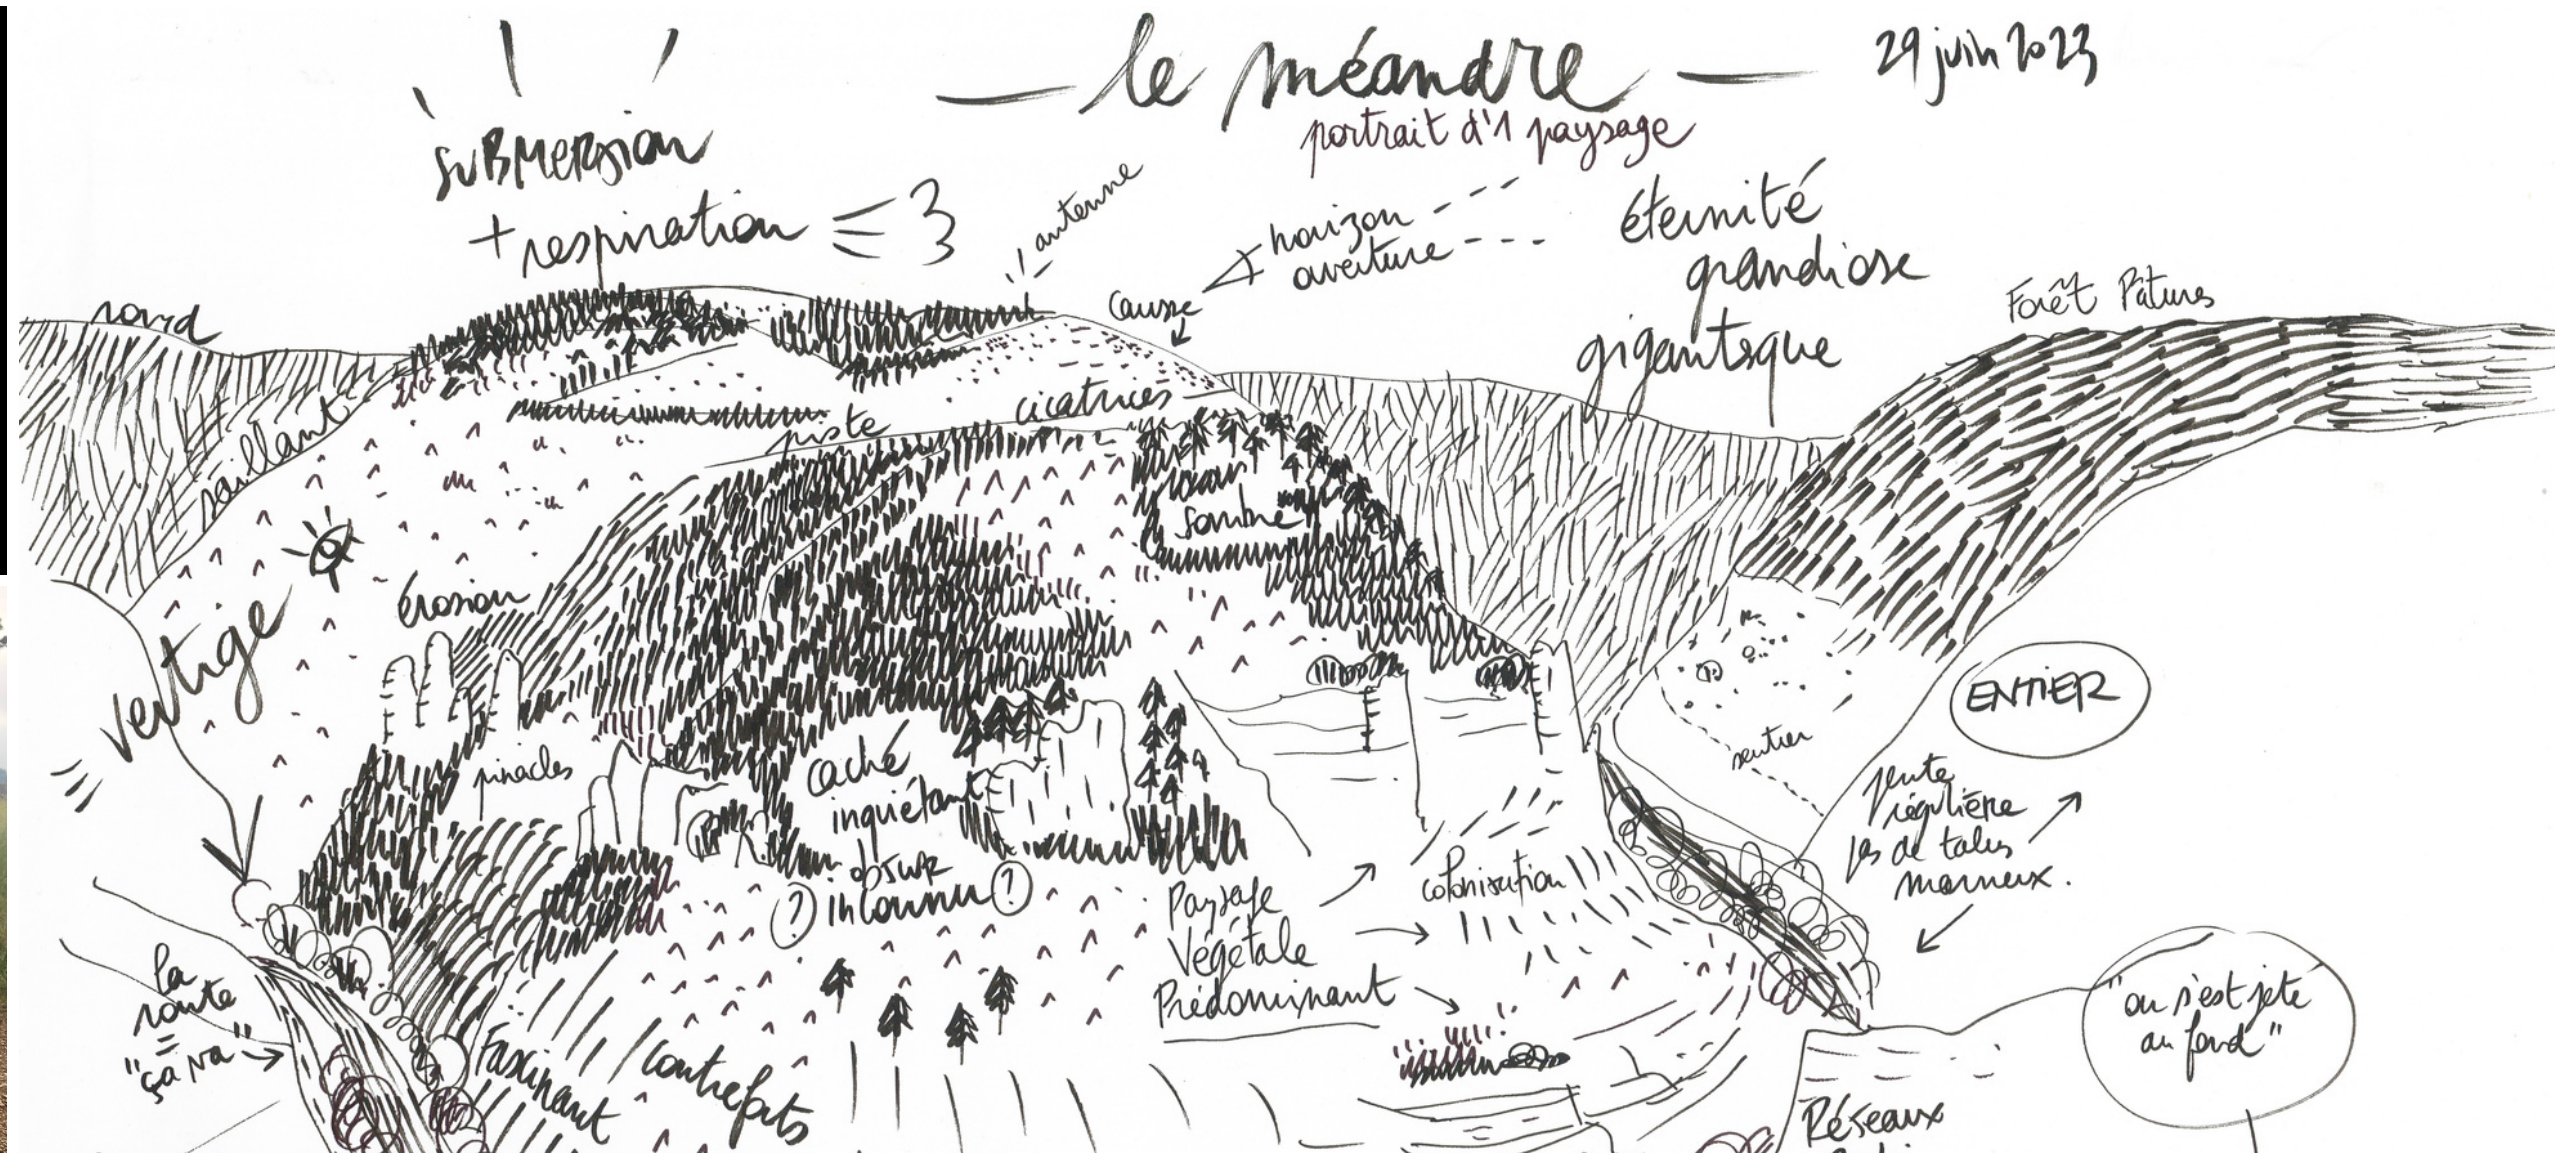 — le méandre —
29 juin 2023
portrait d'1 paysage
suBMersion
+ respiration
antenne
horizon
ouverture
éternité
grandiose
gigantesque
Causse
Forêt Pâtures
nord
saillant
piste
cicatrices
sombre
vertige
érosion
pinacles
caché
inquiétant
obscur
? inconnu ?
sentier
ENTIER
pente
régulière
pas de talus
marneux.
colonisation
Paysage
Végétale
Prédominant
la
route
=
"ça va"
Fascinant
contreforts
"on s'est jeté
au fond"
Réseaux